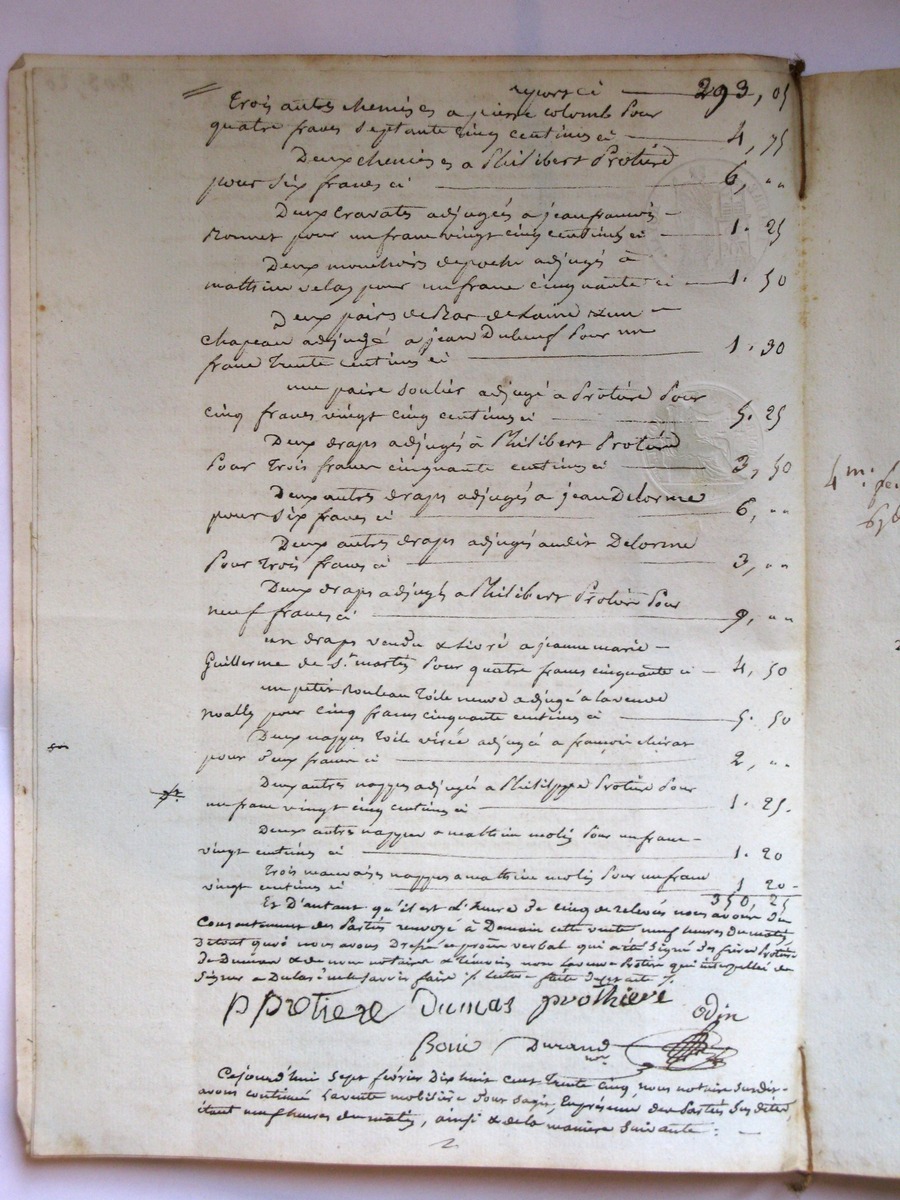 report ci — 293, 05
Trois autres chemises a pierre colomb pour
quatre francs septante cinq centimes ci — 4, 75
Deux chemises a Philibert Protière
pour six francs ci — 6, ""
Deux cravates adjugées a jean francois
Monnet pour un franc vingt cinq centimes ci — 1. 25
Deux mouchoirs de poche adjugés a
mathieu velay pour un franc cinquante ci — 1. 50
Deux paires de Bas de Laine & un
chapeau adjugé a jean Dubeuf pour un
franc trente centimes ci — 1. 30
une paire soulier adjugé a Protière Pour
cinq francs vingt cinq centimes ci — 5. 25
Deux draps adjugés a Philibert Protière
Pour Trois francs cinquante centimes ci — 3, 50
Deux autres draps adjugés a jean Delorme
pour six francs ci — 6, ""
Deux autres draps adjugés audit Delorme
Pour Trois francs ci — 3, ""
Deux draps adjugés a Philibert Protière Pour
neuf francs ci — 9, ""
un draps vendu & livré a jeanne marie
Guillerme de St. martin Pour quatre francs cinquante ci — 4, 50
un petit Rouleau Toile neuve adjugé a la veuve
noally pour cinq francs cinquante centimes ci — 5. 50
Deux nappes Toile adjugé a francois
pour deux francs ci — 2, ""
Deux autres nappes adjugés a Philippe Protière Pour
un franc vingt cinq centimes ci — 1. 25.
Deux autres nappes a mathieu Pour un franc
vingt centimes ci — 1. 20
Trois mauvaises nappes a mathieu Pour un franc
vingt centimes ci — 1 20
350, 25
Et D'autant qu'il est l'heure de cinq de relevée nous avons du
Consentement des Parties renvoyé à Demain cette vente neuf heures du matin,
De tout quoi nous avons Dressé ce procès verbal qui a été signé des frères Protière
De Dumas & de nous notaire & témoins non la veuve Protière qui interpellée de
signer a Declaré ne le savoir faire lecture faite
p protiere Dumas prothiere
odin
Boni Durand nre
Cejourd'hui sept février Dix huit cent Trente Cinq, nous notaire susdit
avons continué la vente mobilière Dont s'agit, En présence des Parties susdites,
étant neuf heures du matin, ainsi & de la manière suivante :
4 m. fe